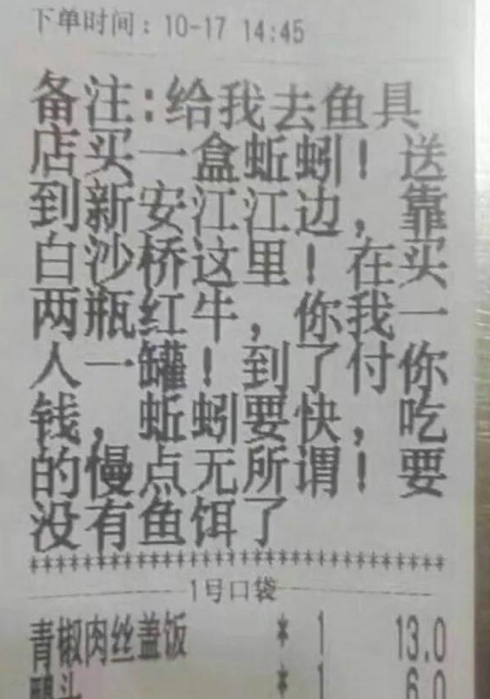 下单时间：10-17 14:45
备注：给我去鱼具
店买一盒蚯蚓！送
到新安江江边，靠
白沙桥这里！在买
两瓶红牛，你我一
人一罐！到了付你
钱，蚯蚓要快，吃
的慢点无所谓！要
没有鱼饵了
********************************
1号口袋
青椒肉丝盖饭 * 1 13.0
鸭头 * 1 6.0